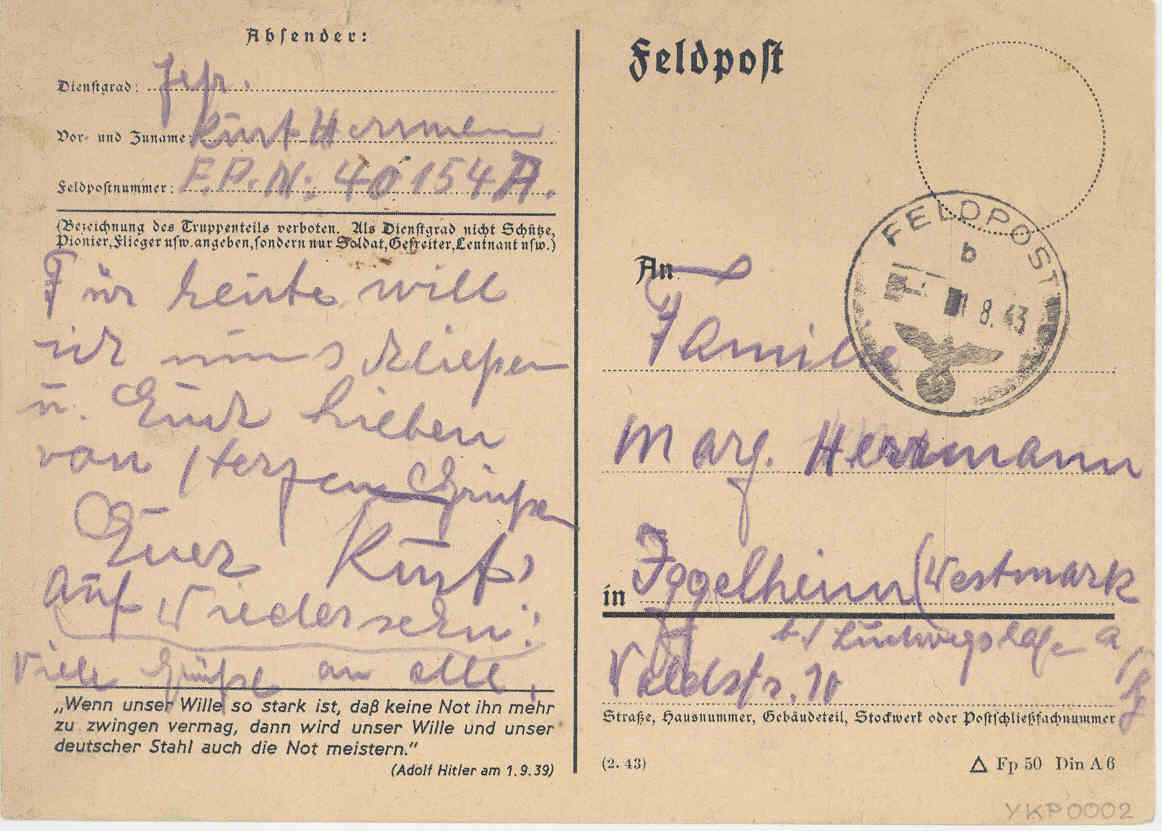 Absender:
Dienstgrad: Gefr.
Vor- und Zuname: Kurt Herrmann
Feldpostnummer: F.P.N: 40154 A.
(Bezeichnung des Truppenteils verboten. Als Dienstgrad nicht Schütze,
Pionier, Flieger usw. angeben, sondern nur Soldat, Gefreiter, Leutnant usw.)
Für heute will
ich nun schließen
u. Euch Lieben
von Herzen Grüßen
Euer Kurt
Auf Wiedersehn!
Viele Grüße an alle.
„Wenn unser Wille so stark ist, daß keine Not ihn mehr
zu zwingen vermag, dann wird unser Wille und unser
deutscher Stahl auch die Not meistern.“
(Adolf Hitler am 1.9.39)
Feldpost
FELDPOST
b
8.43
An
Familie
Marg. Herrmann
in Iggelheim (Westmark
b/ Ludwigshafen a/Rh
Waldstr. 10
Straße, Hausnummer, Gebäudeteil, Stockwerk oder Postschließfachnummer
(2. 43)
△ Fp 50 Din A 6
YKP0002